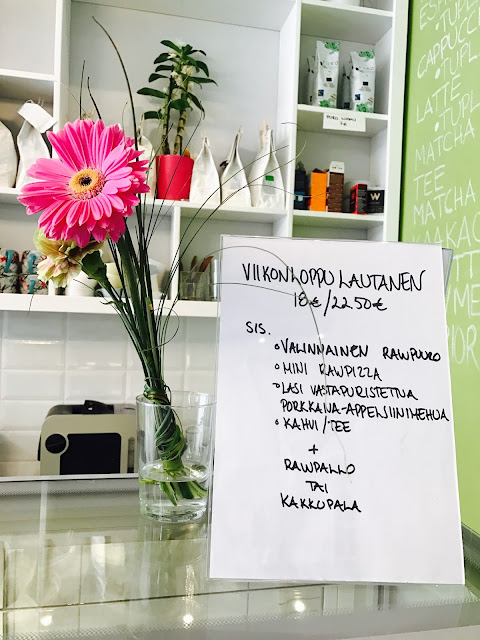 VIIKONLOPPULAUTANEN
18€/22.50€
SIS.
• VALINNAINEN RAWPUURO
• MINI RAWPIZZA
• LASI VASTAPURISTETTUA
PORKKANA-APPELSIINIMEHUA
• KAHVI/TEE
+
RAWPALLO
TAI
KAKKUPALA
CAPPUCC
LATTE
MATCHA
TEE
MATCHA